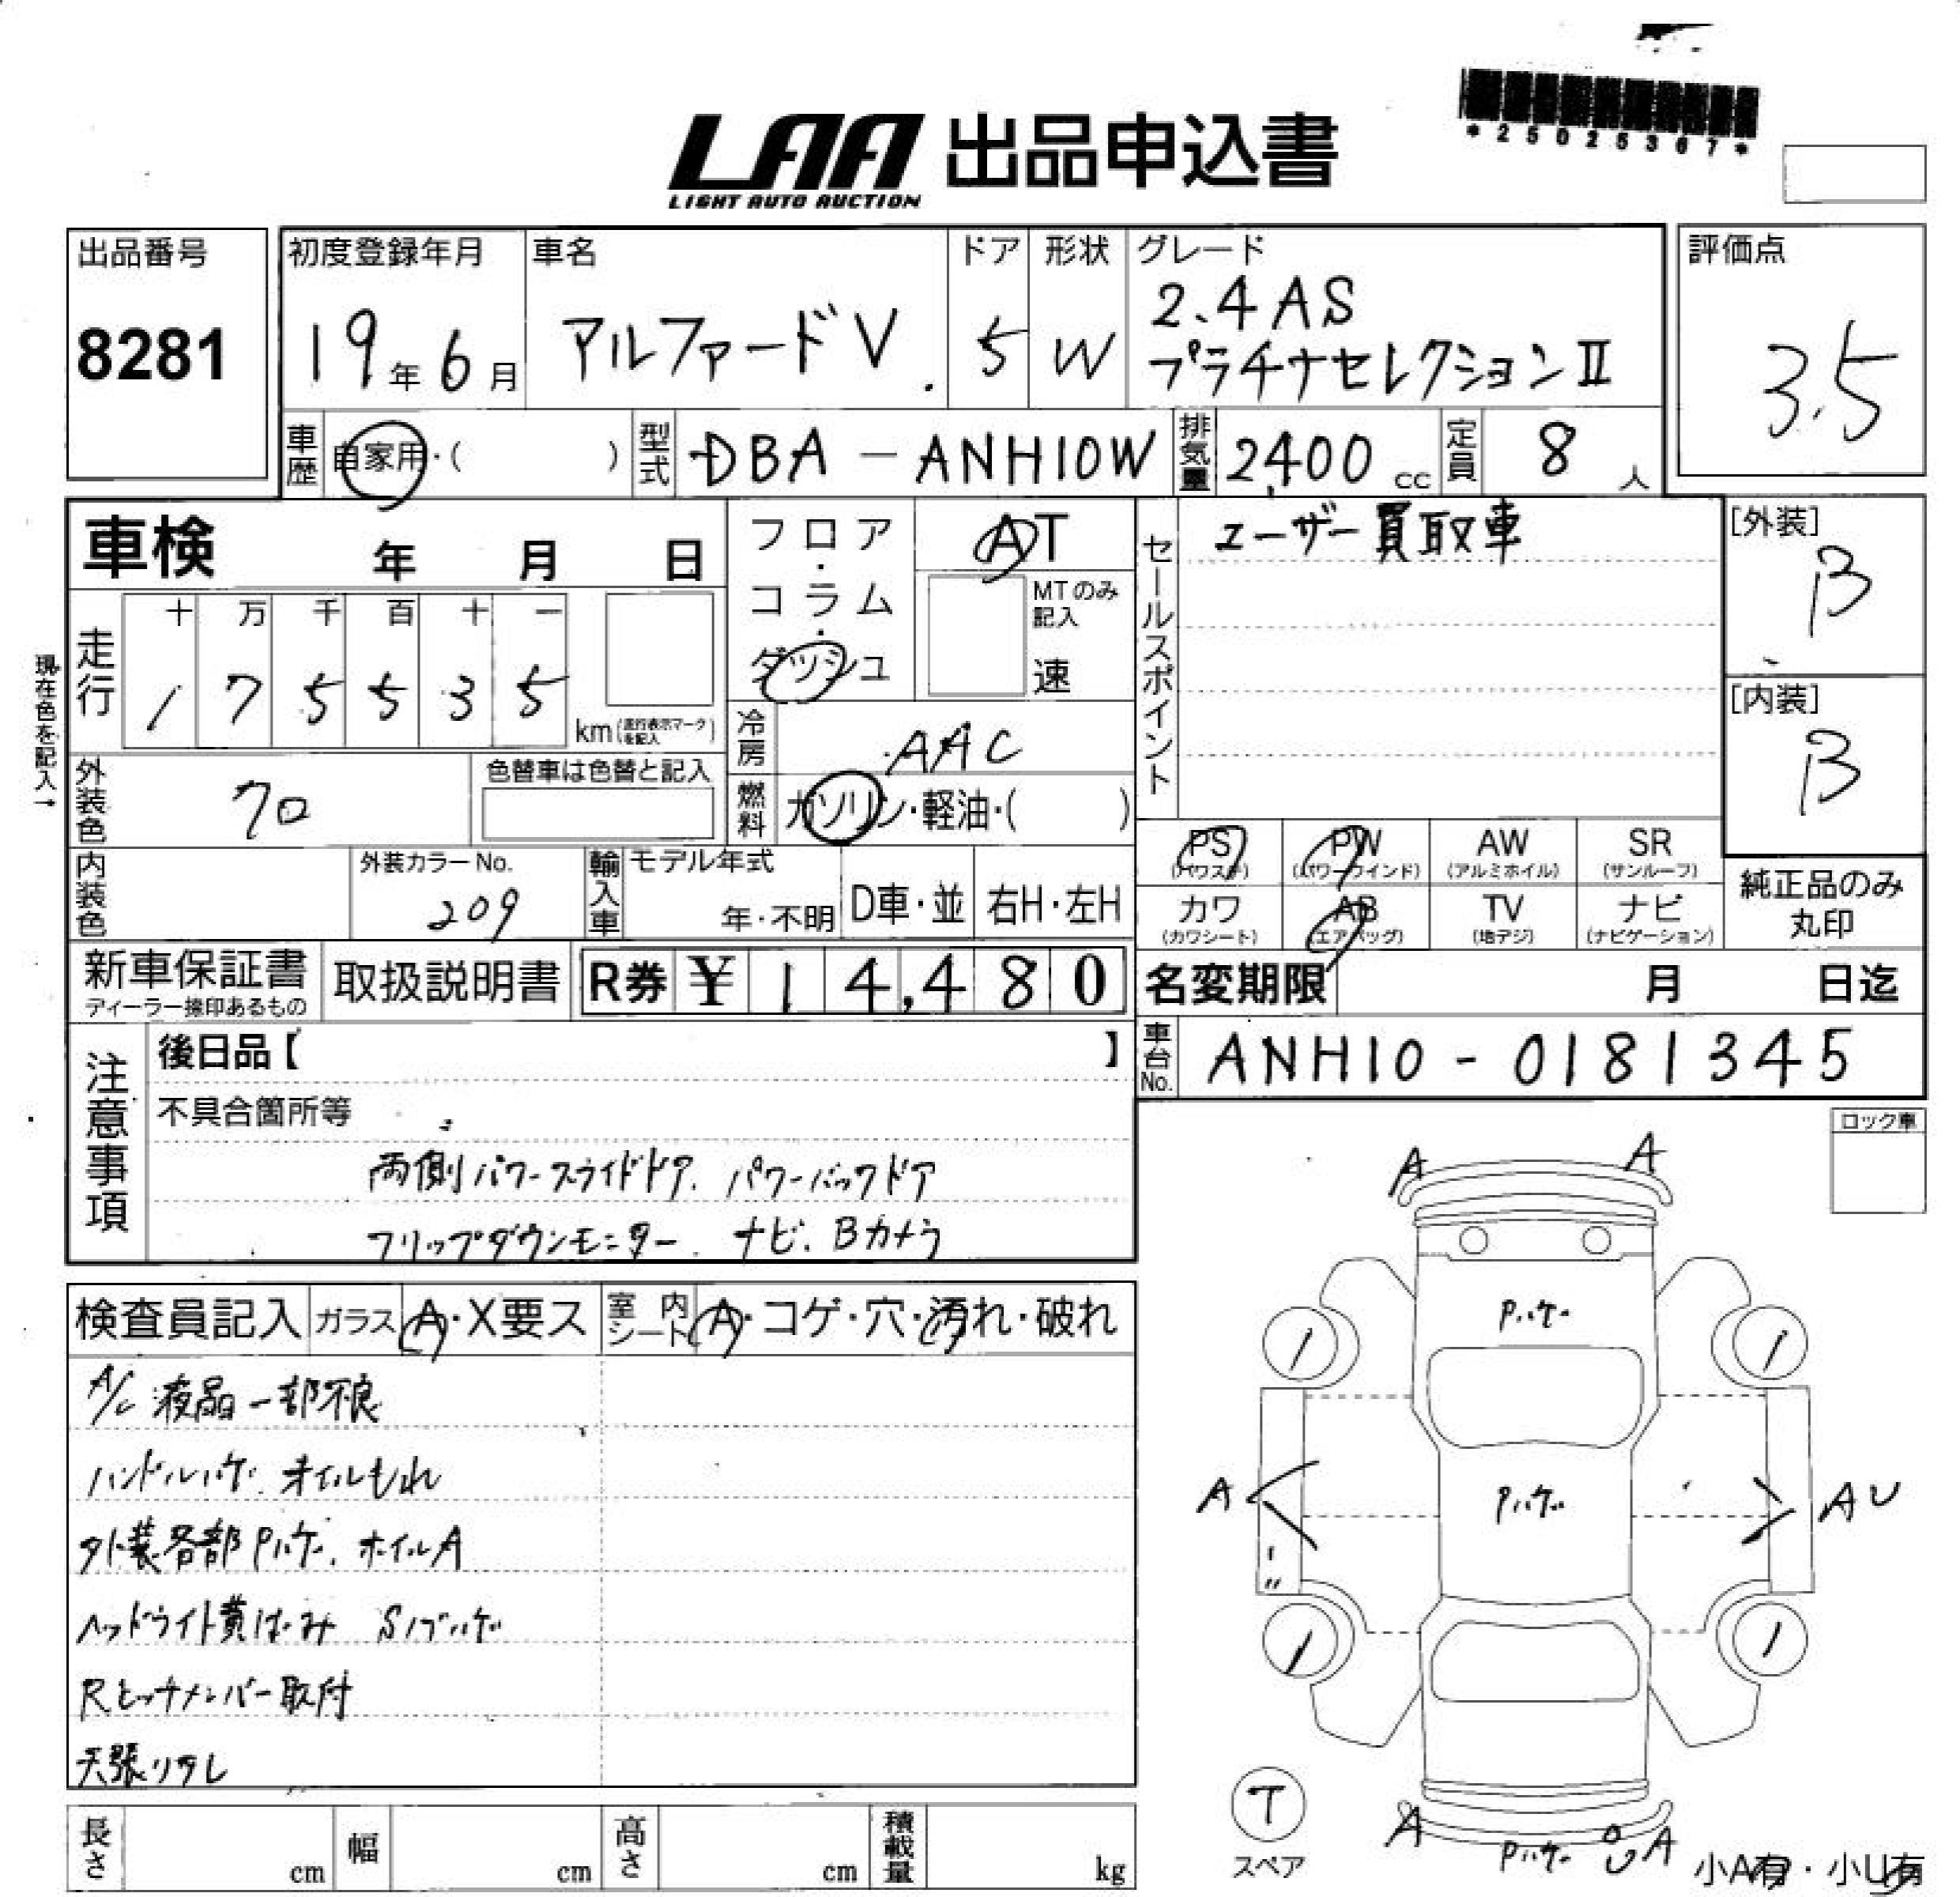 *25025367*
LAA 出品申込書
LIGHT AUTO AUCTION
出品番号
8281
初度登録年月
19年6月
車名
アルファードV
ドア
5
形状
W
グレード
2.4AS
プラチナセレクションⅡ
評価点
3.5
車歴
自家用・( )
型式
DBA-ANH10W
排気量
2,400cc
定員
8人
車検 年 月 日
フロア・コラム・ダッシュ
AT
MTのみ記入
速
セールスポイント
ユーザー買取車
[外装]
B
[内装]
B
現在色を記入→
走行
十 万 千 百 十 一
1 7 5 5 3 5
km(走行表示マークを記入)
冷房
AAC
外装色
クロ
色替車は色替と記入
燃料
ガソリン・軽油・( )
PS
(パワステ)
PW
(パワーウインド)
AW
(アルミホイル)
SR
(サンルーフ)
カワ
(カワシート)
AB
(エアバッグ)
TV
(地デジ)
ナビ
(ナビゲーション)
純正品のみ
丸印
内装色
外装カラーNo.
209
輸入車
モデル年式
年・不明
D車・並
右H・左H
新車保証書
ディーラー捺印あるもの
取扱説明書
R券 ¥14,480
名変期限 月 日迄
注意事項
後日品【 】
車台No.
ANH10-0181345
不具合箇所等
両側パワースライドドア、パワーバックドア
フリップダウンモニター、ナビ、Bカメラ
ロック車
検査員記入
ガラス
A・X要ス
室内シート
A・コゲ・穴・汚れ・破れ
A/C 液晶一部不良
ハンドルハゲ、オイルもれ
外装各部Pハゲ、ホイルA
ヘッドライト黄ばみ Sノブハゲ
Rヒッチメンバー取付
天張りタレ
A
A
Pハゲ
A
Pハゲ
AU
T
スペア
A
Pハゲ
U
A
小A有・小U有
長さ cm
幅 cm
高さ cm
積載量 kg